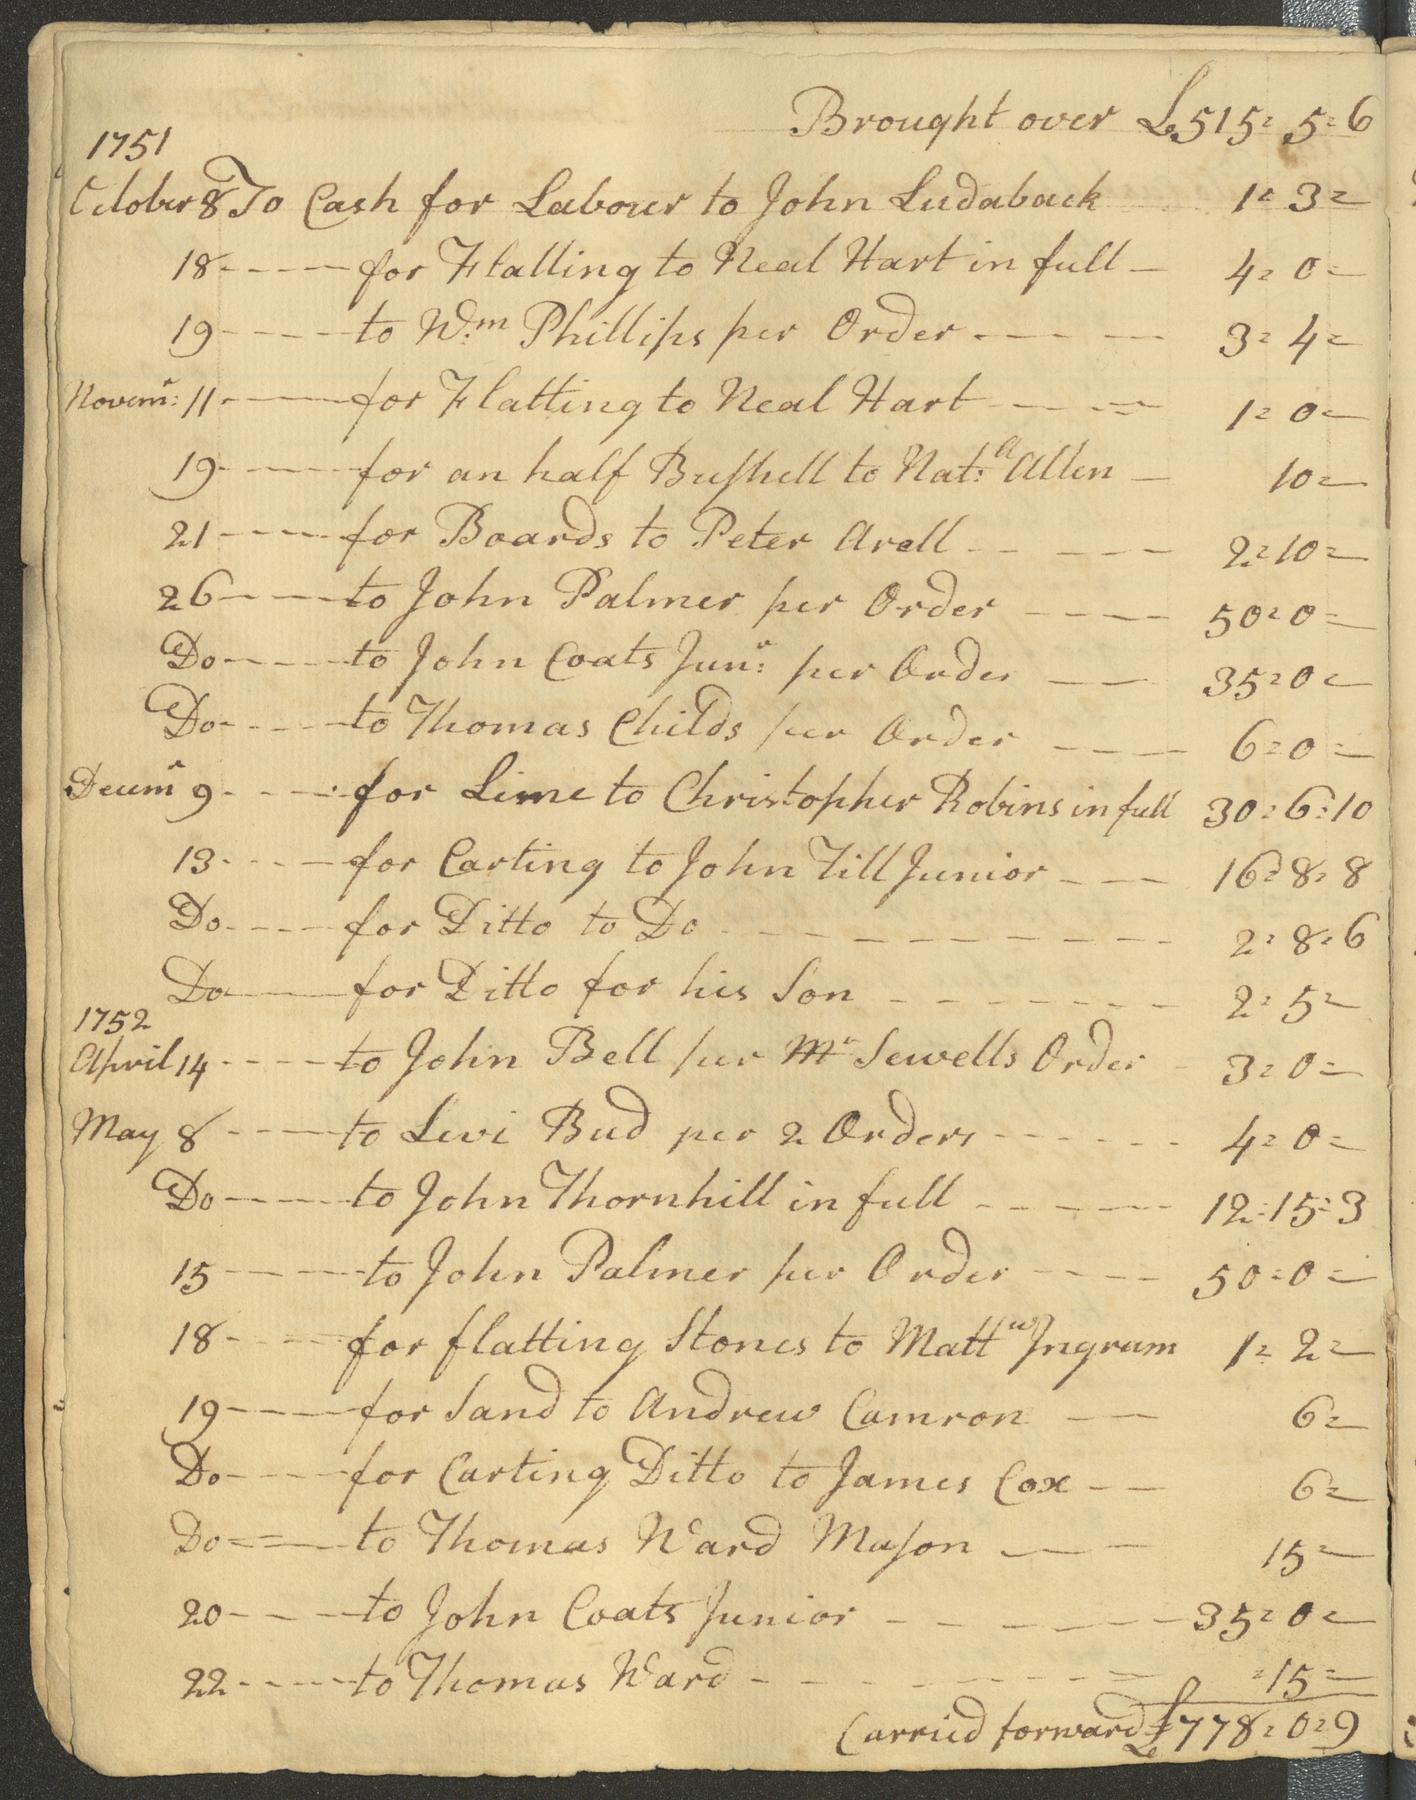 Brought over £515: 5: 6
1751
October 8 To Cash for Labour to John Ludaback 1: 3=
18 ---- for Flatting to Neal Hart in full — 4: 0=
19 ---- to Wm Phillips per Order ---- 3: 4=
Novemr: 11 ---- for Flatting to Neal Hart ---- 1: 0=
19 ---- for an half Bushell to Natl: Allen — 10=
21 ---- for Boards to Peter Arell ---- 2: 10=
26 ---- to John Palmer per Order ---- 50: 0=
Do ---- to John Coats Junr: per Order ---- 35: 0=
Do ---- to Thomas Childs per Order ---- 6: 0=
Decemr 9 ---- for Lime to Christopher Robins in full 30: 6: 10
13 ---- for Carting to John Till Junior ---- 16: 8: 8
Do ---- for Ditto to Do ---- 2: 8: 6
Do ---- for Ditto for his Son ---- 2: 5=
1752
April 14 ---- to John Bell per Mr Sewells Order - 3: 0=
May 8 ---- to Levi Bud per 2 Orders ---- 4: 0=
Do ---- to John Thornhill in full ---- 12: 15: 3
15 ---- to John Palmer per Order ---- 50: 0=
18 ---- for flatting Stones to Mattw Ingram 1: 2=
19 ---- for Sand to Andrew Camron ---- 6=
Do ---- for Carting Ditto to James Cox ---- 6=
Do ---- to Thomas Ward Mason ---- 15=
20 ---- to John Coats Junior ---- 35: 0=
22 ---- to Thomas Ward ---- : 15=
Carried forward £778: 0: 9